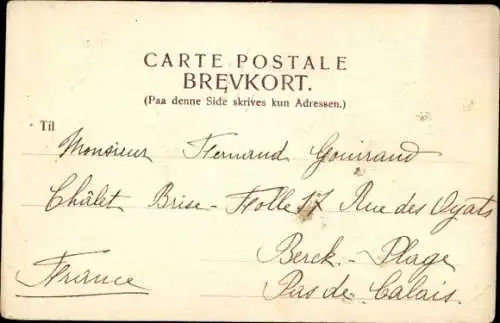 CARTE POSTALE
BREVKORT.
(Paa denne Side skrives kun Adressen.)
Til
Monsieur Fernand Gouirand
Châlet Brise-Folle 17 Rue des Oyats
Berck-Plage
France
Pas de Calais.